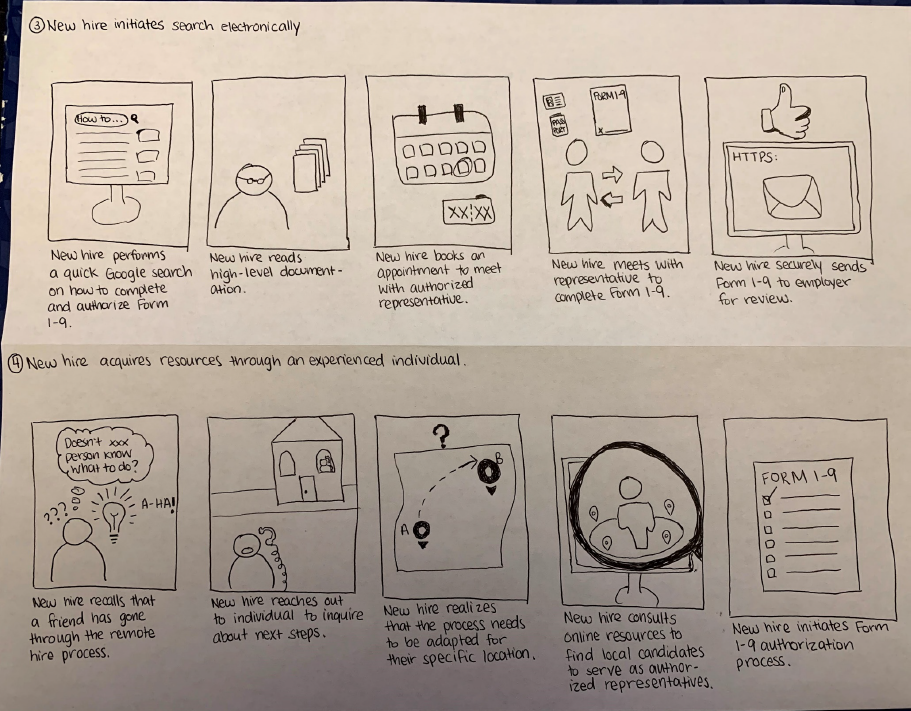 ③ New hire initiates search electronically
How to...
New hire performs
a quick Google search
on how to complete
and authorize Form
1-9.
New hire reads
high-level document-
ation.
XX:XX
New hire books an
appointment to meet
with authorized
representative.
FORM 1-9
PAS
PORT
X
New hire meets with
representative to
complete Form 1-9.
HTTPS:
New hire securely sends
Form 1-9 to employer
for review.
④ New hire acquires resources through an experienced individual.
Doesn't xxx
person know
what to do?
???
A-HA!
New hire recalls that
a friend has gone
through the remote
hire process.
New hire reaches out
to individual to inquire
about next steps.
?
A
B
New hire realizes
that the process needs
to be adapted for
their specific location.
New hire consults
online resources to
find local candidates
to serve as author-
ized representatives.
FORM 1-9
New hire initiates Form
1-9 authorization
process.